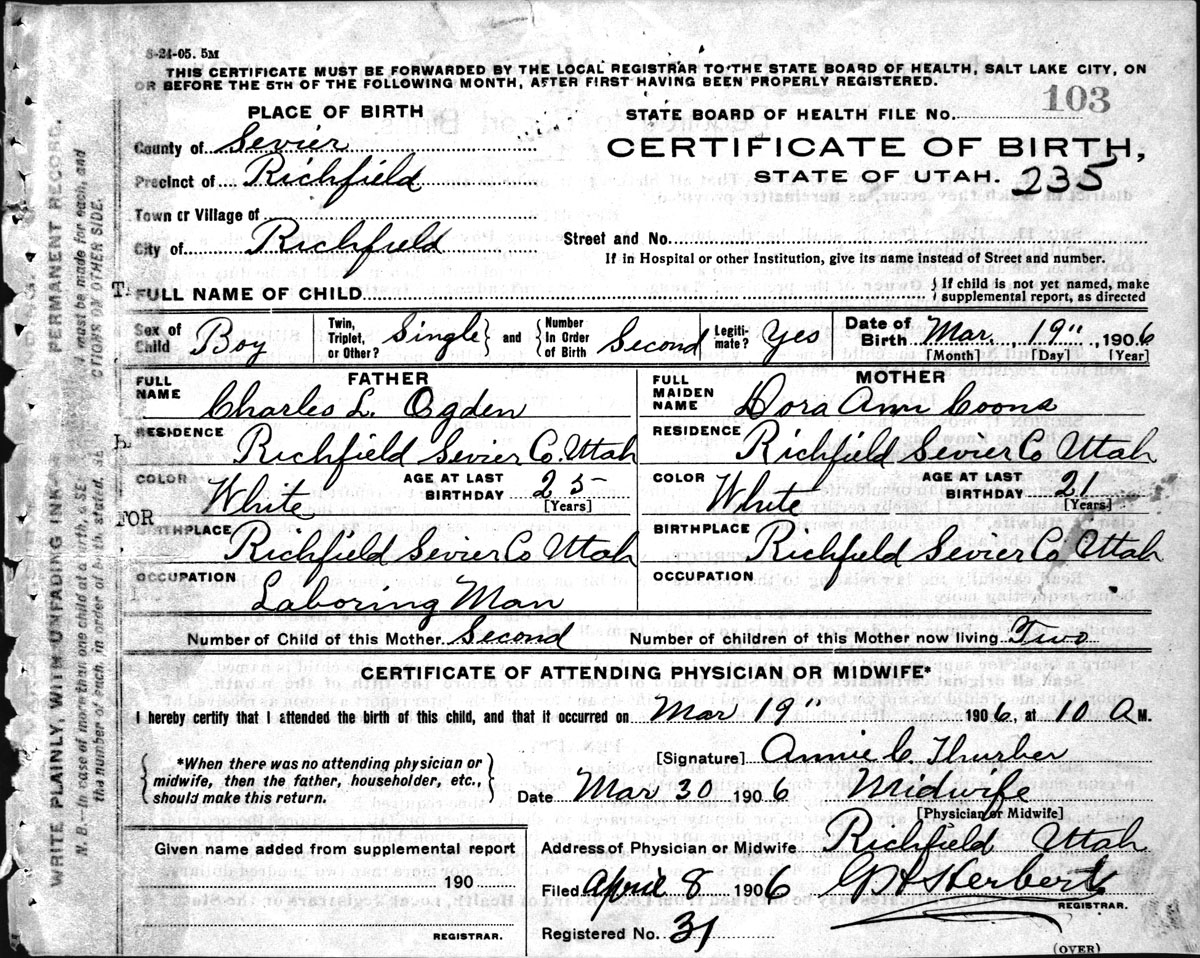 8-24-05. 5M
THIS CERTIFICATE MUST BE FORWARDED BY THE LOCAL REGISTRAR TO THE STATE BOARD OF HEALTH, SALT LAKE CITY, ON
OR BEFORE THE 5TH OF THE FOLLOWING MONTH, AFTER FIRST HAVING BEEN PROPERLY REGISTERED.
PLACE OF BIRTH
STATE BOARD OF HEALTH FILE No. 103
County of Sevier
CERTIFICATE OF BIRTH,
Precinct of Richfield
STATE OF UTAH. 235
Town or Village of
City of Richfield
Street and No.
If in Hospital or other Institution, give its name instead of Street and number.
FULL NAME OF CHILD
If child is not yet named, make
supplemental report, as directed
Sex of Child Boy
Twin, Triplet, or Other? Single and Number In Order of Birth Second
Legitimate? Yes
Date of Birth Mar. 19", 1906
[Month] [Day] [Year]
FATHER
FULL NAME Charles L. Ogden
RESIDENCE Richfield Sevier Co. Utah
COLOR White
AGE AT LAST BIRTHDAY 25
[Years]
BIRTHPLACE Richfield Sevier Co Utah
OCCUPATION Laboring Man
MOTHER
FULL MAIDEN NAME Dora Ann Coons
RESIDENCE Richfield Sevier Co Utah
COLOR White
AGE AT LAST BIRTHDAY 21
[Years]
BIRTHPLACE Richfield Sevier Co Utah
OCCUPATION
Number of Child of this Mother Second
Number of children of this Mother now living Two
CERTIFICATE OF ATTENDING PHYSICIAN OR MIDWIFE*
I hereby certify that I attended the birth of this child, and that it occurred on Mar 19" 1906, at 10 A M.
*When there was no attending physician or
midwife, then the father, householder, etc.,
should make this return.
[Signature] Annie C. Thurber
Date Mar 30 1906 Midwife
[Physician or Midwife]
Given name added from supplemental report
190
REGISTRAR.
Address of Physician or Midwife Richfield Utah
Filed April 8 1906 G H Herbert
REGISTRAR.
Registered No. 31
(OVER)
WRITE PLAINLY, WITH UNFADING INK
PERMANENT RECORD.
N. B.—In case of more than one child at a birth, a SE
must be made for each, and
the number of each, in order of birth, stated. SE
CTIONS ON OTHER SIDE.
FOR